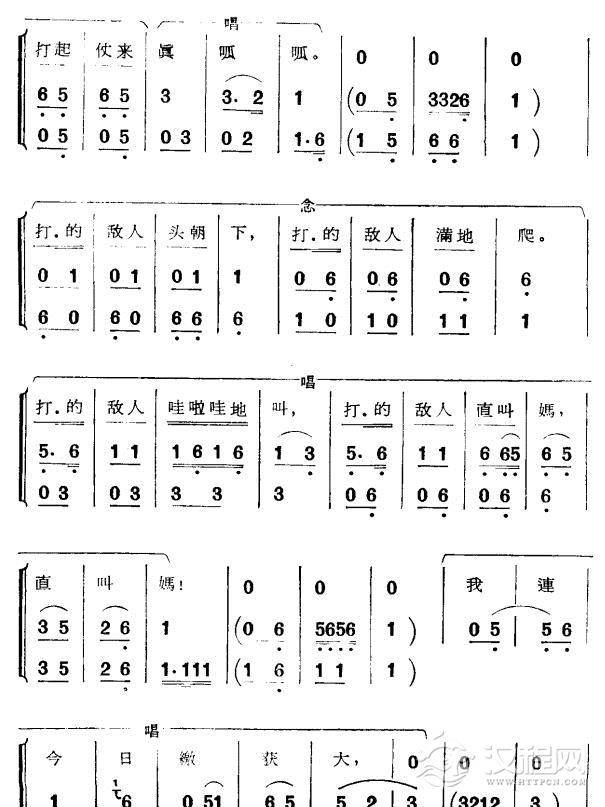 唱
打起 仗来 眞 呱 呱。 0 0 0
6 5 6 5 3 3. 2 1 (0 5 3326 1)
0 5 0 5 0 3 0 2 1·6 (1 5 6 6 1)
念
打.的 敌人 头朝 下， 打.的 敌人 滿地 爬。
0 1 0 1 0 1 1 0 6 0 6 0 6 6
6 0 6 0 6 6 6 1 0 1 0 1 1 1
唱
打.的 敌人 哇啦哇地 叫， 打.的 敌人 直叫 媽，
5. 6 1 1 1 6 1 6 1 3 5. 6 1 1 6 65 6 5
0 3 0 3 3 3 3 0 6 0 6 0 6 6
直 叫 媽！ 0 0 0 我 連
3 5 2 6 1 (0 6 5656 1) 0 5 5 6
3 5 2 6 1·111 (1 6 1 1 1)
唱
今 日 繳 获 大， 0 0 0
1 6 0 51 6 5 5 2 3 (3212 3)
汉程网
WWW.HTTPCN.COM